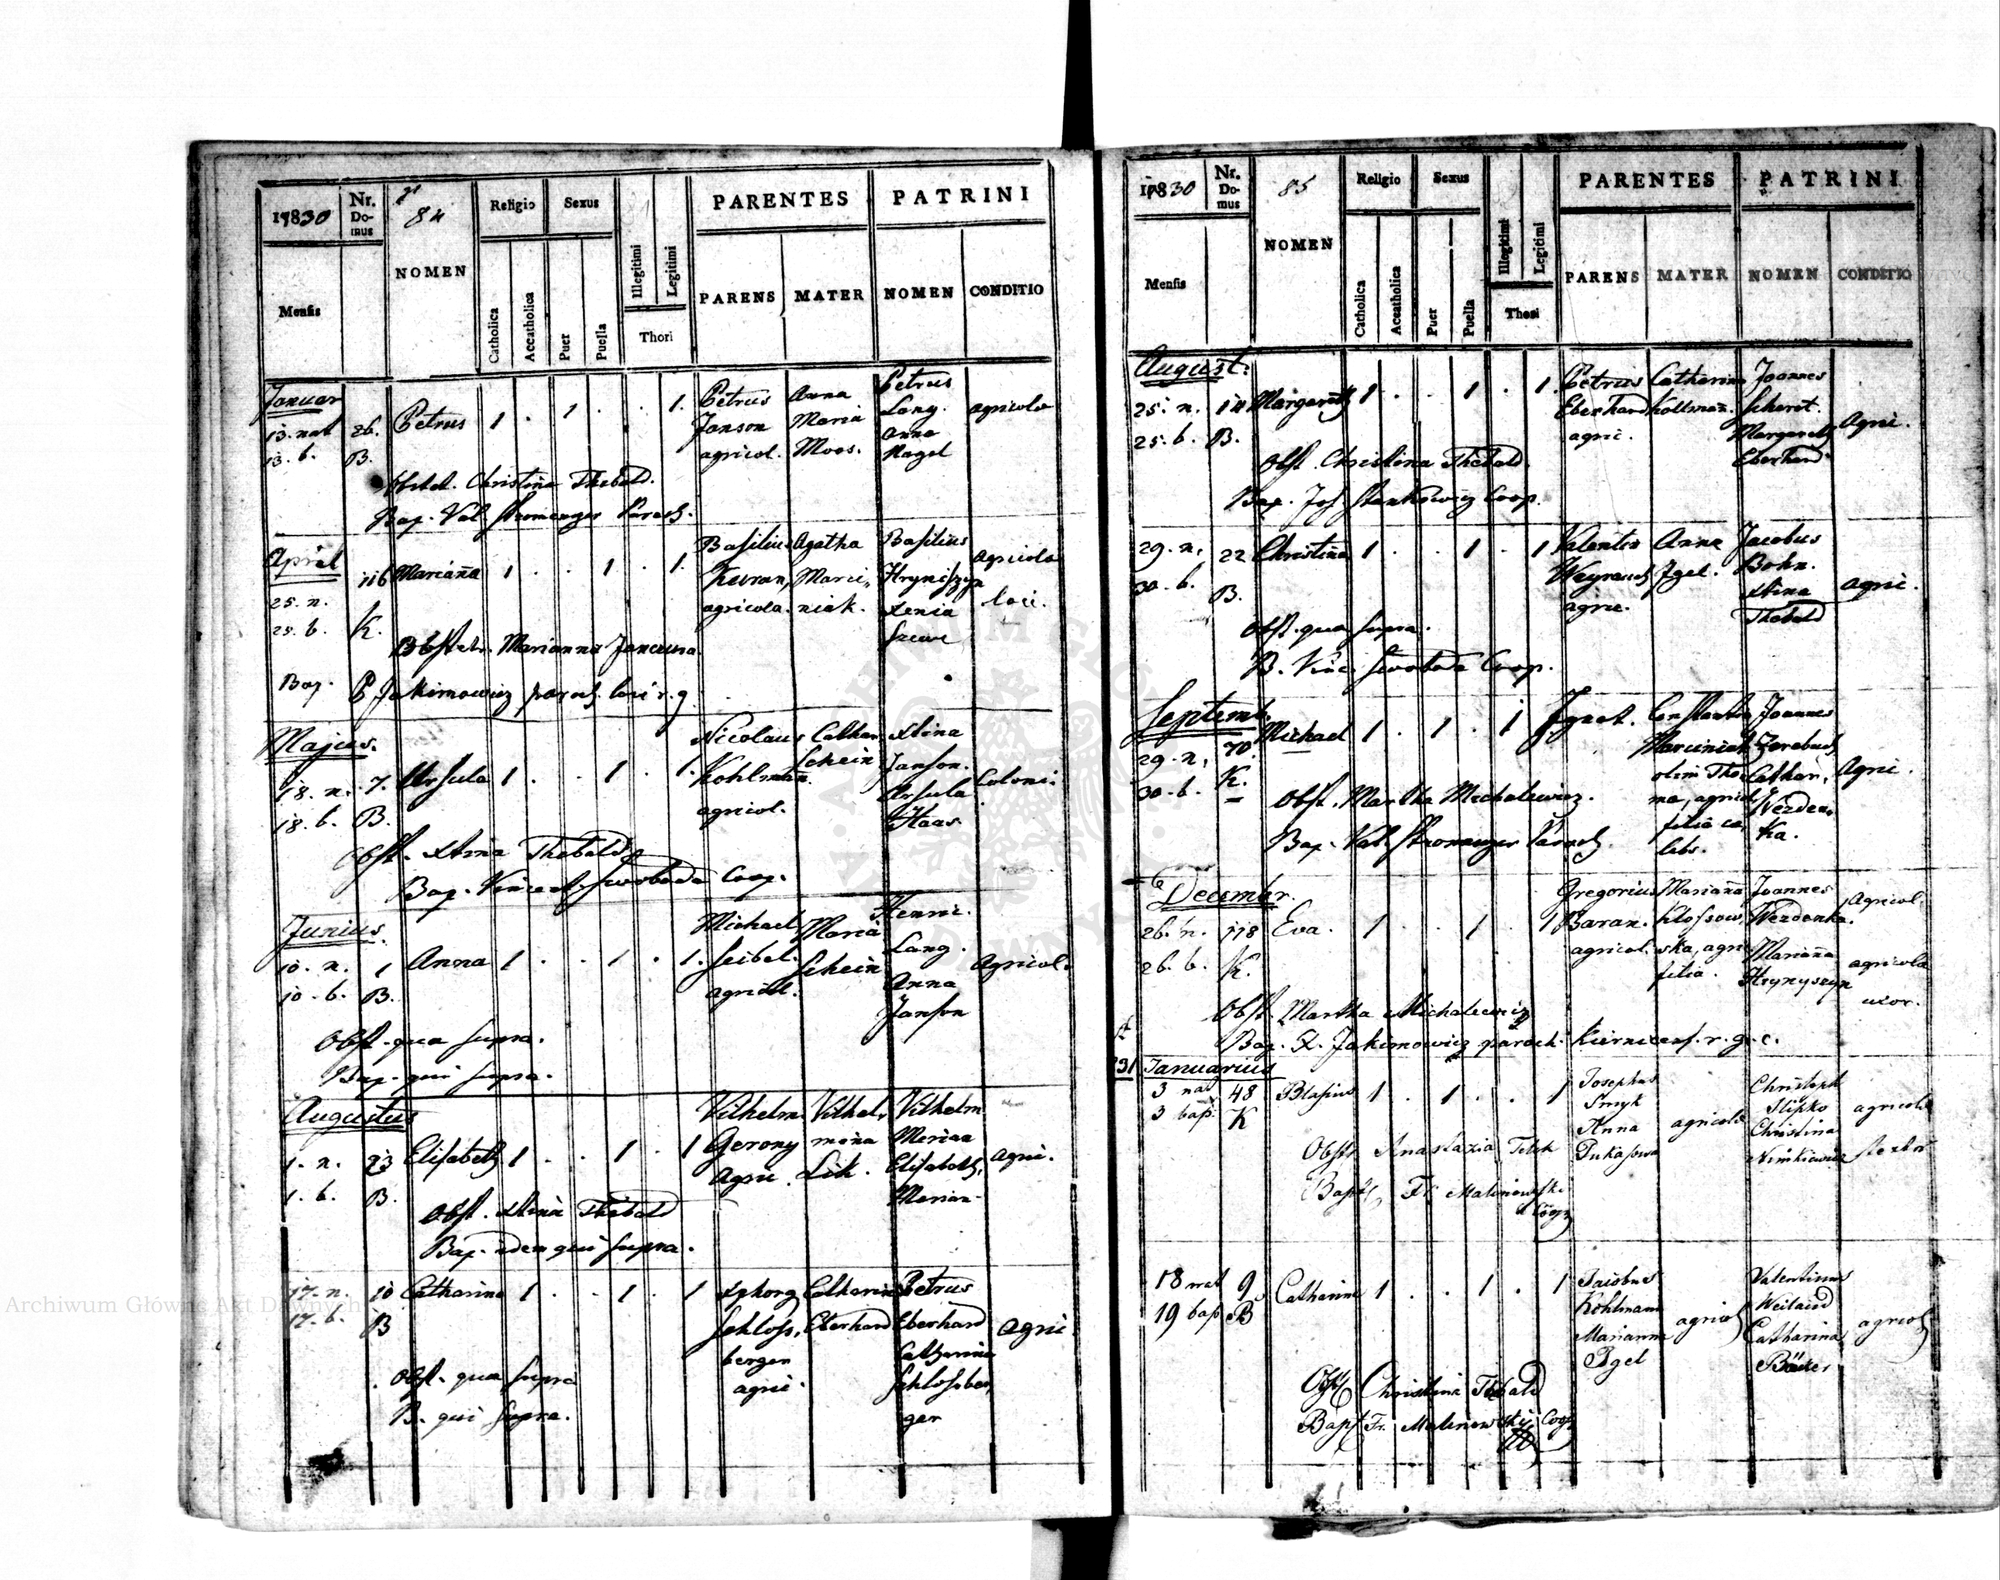 17830
Nr. Domus
84
NOMEN
Religio
Sexus
PARENTES
PATRINI
Mensis
Catholica
Accatholica
Puer
Puella
Illegitimi
Legitimi
Thori
PARENS
MATER
NOMEN
CONDITIO
Januar
13. nat 26. Petrus 1 . 1 . . 1. Petrus Anna Petrus
13. b. B. Janson Maria Lang. agricola
agricol. Moos. Anna
Nagel
Obstet. Christina Thebald.
Bap. Val. Stromenger Paroch.
April
116 Marianna 1 . . 1 . 1. Basilius Agatha Basilius agricola
25. n. Marci, Hryniszyn loci.
25. b. K. agricola. niak. Xenia
Obstetr. Marianna
Bap. P Jakimowicz paroch. loci r. g
Majus.
18. n. 7. Ursula 1 . . 1 . 1. Nicolaus Cathar. Xtina
18. b. B. Kohlman Schein Janson. Coloni.
agricol. Ursula
Haas.
Obst. Xtina Thebald
Bap. Vincent Swoboda Coop.
Junius.
10. n. 1 Anna 1 . . 1 . 1. Michael Maria Henric.
10. b. B. Seibel. Schein Lang. Agricol.
agricol. Anna
Janson
Obst. qua supra.
Bap. qui supra.
Augustus
1. n. 23 Elisabeth 1 . . 1 . 1 Vilhelm Vilhel, Vilhelm
1. b. B. Gerony mina Merian Agri.
Agric. Lik. Elisabeth
Merian
Obst. Xtina Thebald
Bap. idem qui supra.
17. n. 10 Catharina 1 . . 1 . 1 Catharina Petrus
17. b. B Schloss, Eberhard Eberhard Agric
berger Catharina
agric. Schlosber
ger
Obst. qua supra
B. qui supra.
Archiwum Główne Akt Dawnych
17830
Nr. Domus
85
NOMEN
Religio
Sexus
PARENTES
PATRINI
Mensis
Catholica
Accatholica
Puer
Puella
Illegitimi
Legitimi
Thori
PARENS
MATER
NOMEN
CONDITIO
August.
25. n. 14 Margareth 1 . . 1 . 1. Petrus Catharina Joannes
25. b. B. Eberhard Koltman. Agri.
agric. Margareth
Eberhard
Obst. Christina Thebald.
Bap. Jos Stankowicz Coop.
29. n, 22 Christina 1 . . 1 . 1 Valentin Anna Jacobus
30. b. B. Weyrauch Igel. Bohn. agric.
agric. Xtina
Thebald
Obst. qua supra.
B. Vinc. Swoboda Coop.
Septemb.
29. n, 70. Michael 1 . 1 . 1 Ignot. Constantia Joannes
30. b. K. Marciniak Agri.
olim Tho Cathar,
ma, agricol Wezden,
filia ca, ka.
lebs.
Obst. Martha Michalewicz.
Bap. Val Stromenger Paroch.
December.
26. n. 118 Eva. 1 . . 1 . 1 Gregorius Marianna Joannes Agricol.
26. b. K. Baran. Klossow, Wezdenka.
agricol. ska, agri Marianna agricola
filia. Hrynyszyn uxor.
Obst. Martha Michalewicz
Bap. X. Jakimowicz paroch. Kiernicens. r. g. c.
31 Januarius
3 nat 48 Blasius 1 . 1 . . 1 Josephus Christoph
3 bap. K Smyk Slipko agricola
Anna agricola Christina
Obstr Anastazia
Bapt. Fr. Malinowski
Coop
18 nat 9. Catharina 1 . . 1 . 1 Jacobus Valentinus
19 bap B Kohlmann Weiland
Marianna agricol Catharina agricol
Igel Bäcker
Obst Christina Tebald
Bapt Fr. Malinowski Coop
ARCHIWUM GŁÓWNE AKT DAWNYCH